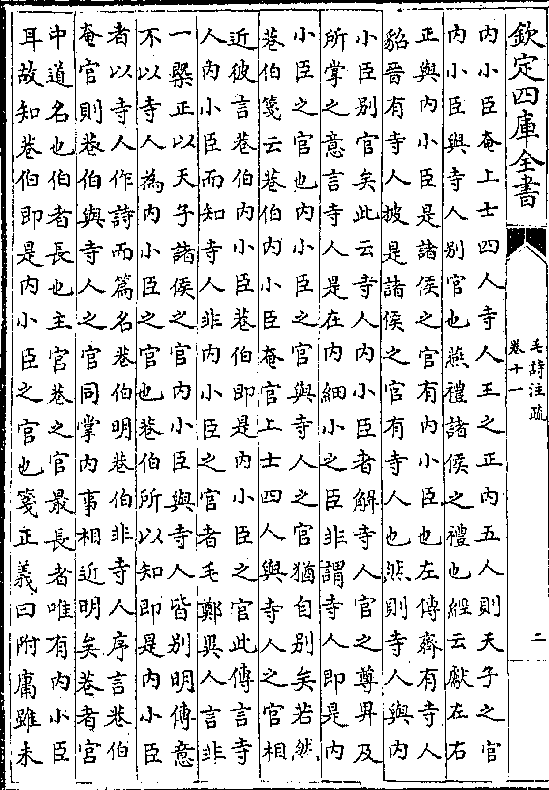 欽定四庫全書
毛詩注疏
卷十一
二
内小臣奄上士四人寺人王之正内五人則天子之官
内小臣與寺人别官也燕禮諸侯之禮也經云獻左右
正與内小臣是諸侯之官有内小臣也左傳齊有寺人
貂晉有寺人披是諸侯之官有寺人也然則寺人與内
小臣别官矣此云寺人内小臣者解寺人官之尊卑及
所掌之意言寺人是在内細小之臣非謂寺人即是内
小臣之官也内小臣之官與寺人之官猶自别矣若然
巷伯箋云巷伯内小臣奄官上士四人與寺人之官相
近彼言巷伯内小臣巷伯即是内小臣之官此傳言寺
人内小臣而知寺人非内小臣之官者毛鄭異人言非
一槩正以天子諸侯之官内小臣與寺人皆别明傳意
不以寺人為内小臣之官也巷伯所以知即是内小臣
者以寺人作詩而篇名巷伯明巷伯非寺人序言巷伯
奄官則巷伯與寺人之官同掌内事相近明矣巷者宫
中道名也伯者長也主宫巷之官最長者唯有内小臣
耳故知巷伯即是内小臣之官也箋正義曰附庸雖未